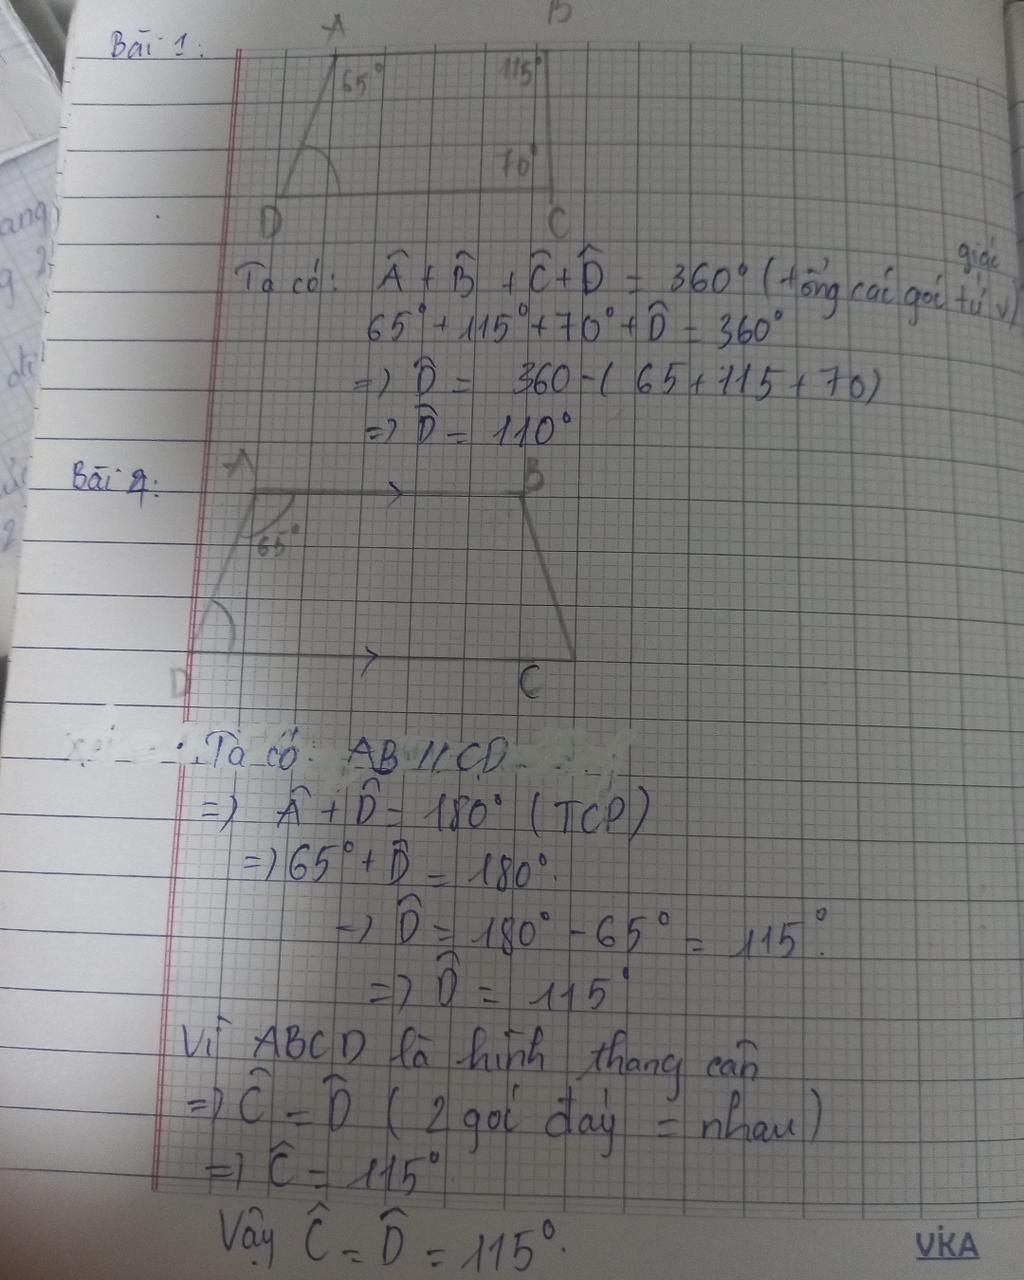 A B
Bài 1:
65° 115°
70°
D C
Ta có: Â + B̂ + Ĉ + D̂ = 360° (tổng các gói tứ giác)
65° + 115° + 70° + D̂ = 360°
=> D̂ = 360 - ( 65 + 115 + 70)
=> D̂ = 110°
Bài 2:
A B
65°
D C
Ta có: AB // CD
=> Â + D̂ = 180° (TCP)
=> 65° + D̂ = 180°.
=> D̂ = 180° - 65° = 115°.
=> D̂ = 115°
Vì ABCD là hình thang cân
=> Ĉ = D̂ ( 2 gói đáy = nhau)
=> Ĉ = 115°
Vậy Ĉ = D̂ = 115°.
VIKA